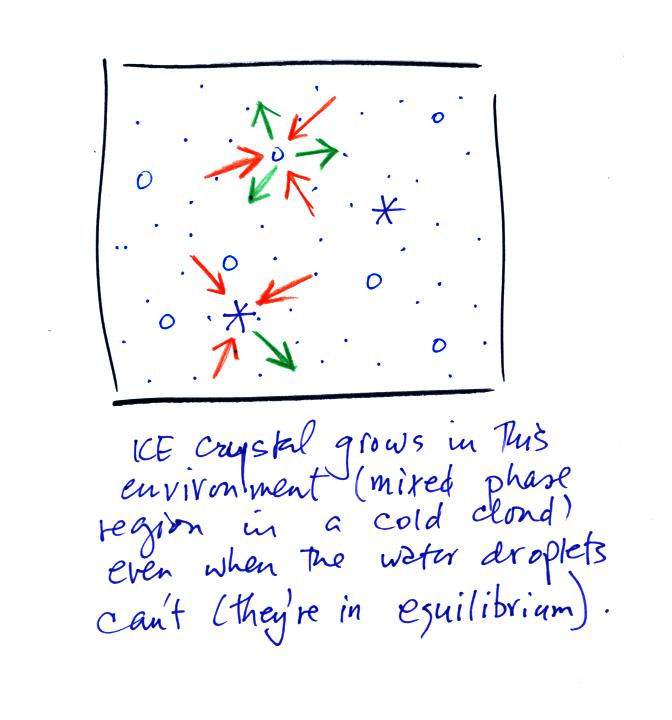 ICE crystal grows in this
environment (mixed phase
region in a cold cloud)
even when the water droplets
can't (they're in equilibrium).